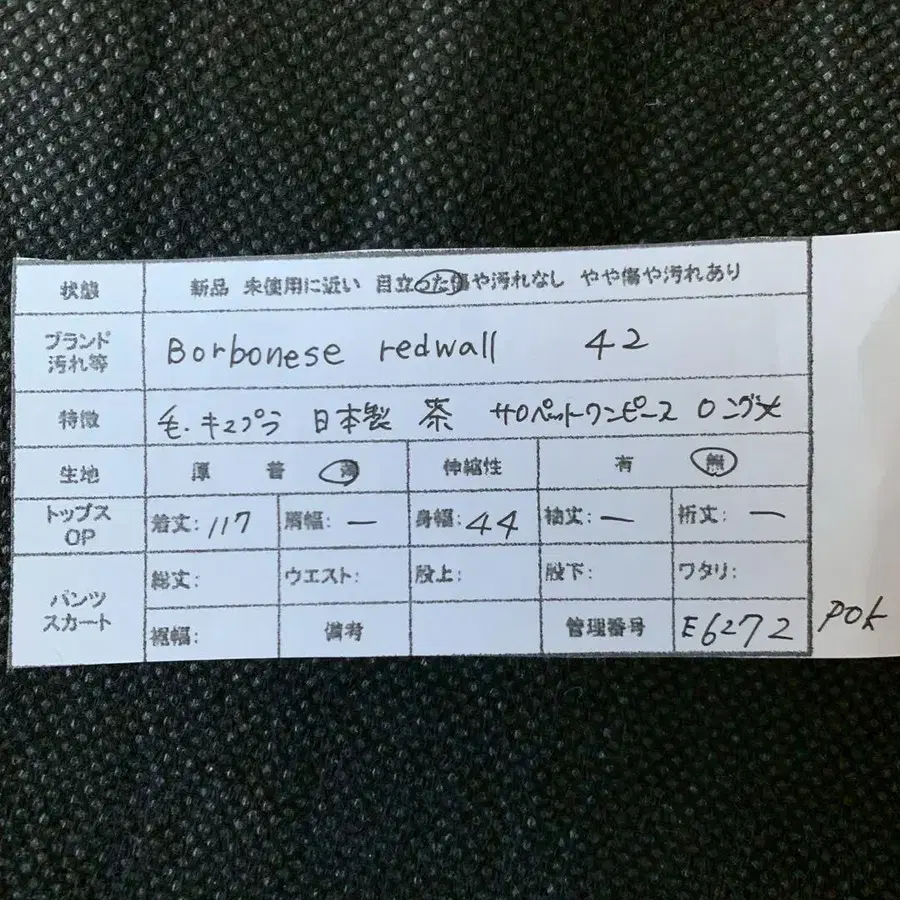 状態 新品 未使用に近い 目立った傷や汚れなし やや傷や汚れあり
ブランド 汚れ等 Borbonese redwall 42
特徴 毛.キュプラ 日本製 茶 サロペットワンピース ロング丈
生地 厚 普 薄 伸縮性 有 無
トップス OP 着丈:117 肩幅:— 身幅:44 袖丈:— 裄丈:—
パンツ スカート 総丈: ウエスト: 股上: 股下: ワタリ:
裾幅: 備考 管理番号 E6272 POK